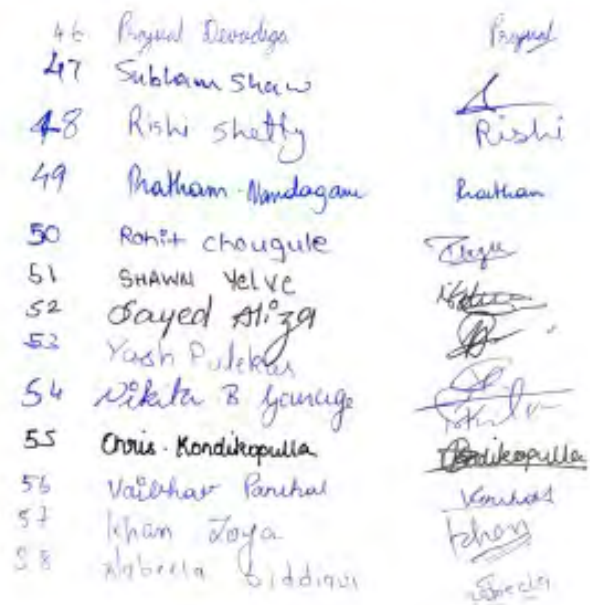 46 Prajwal Devadiga Prajwal
47 Subham Shaw
48 Rishi Shetty Rishi
49 Pratham. Nandagam Pratham
50 Rohit chougule
51 SHAWN Yelve
52 Sayed Aliza
53 Yash Pulekar
54 Nikita B
55 Chris. Kondikopulla Kondikopulla
56 Vaibhav Panchal
57 Khan Zoya Khan
58 Nabeela Siddiqui Nabeela